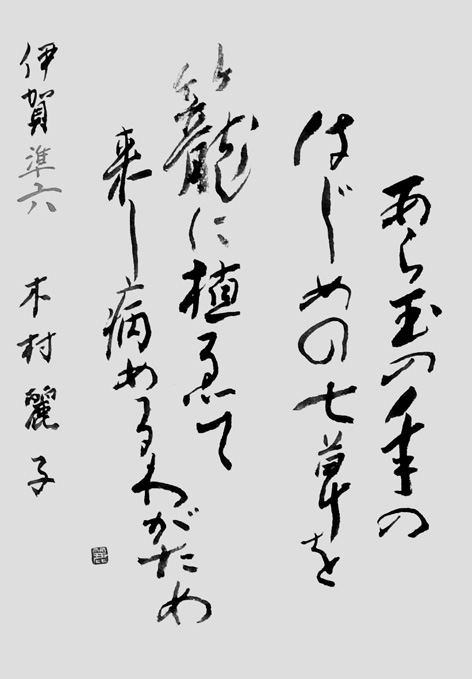 あら玉の年の
はじめの七草を
籠に植ゑて
来し病めるわがため
伊賀 準六 木村麗子